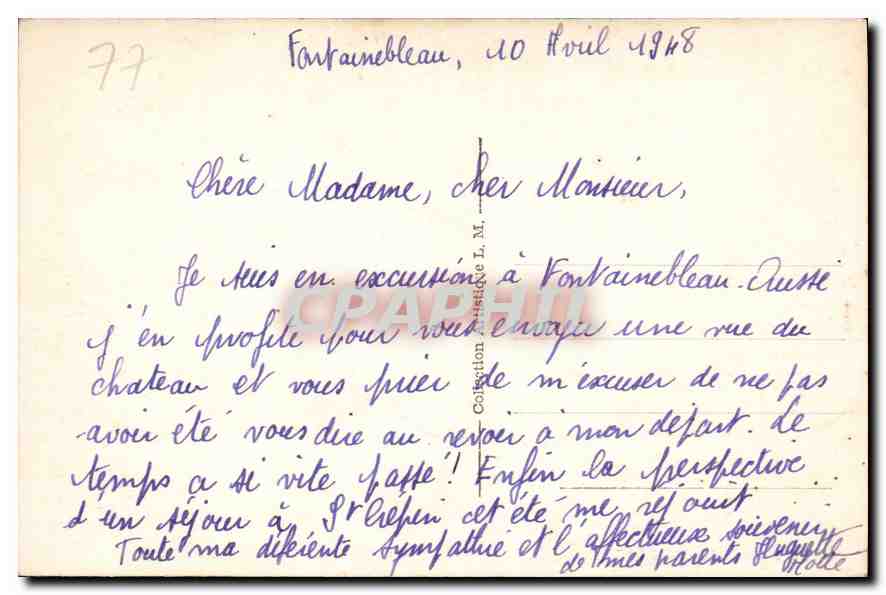 77
Fontainebleau, 10 Avril 1948
Chère Madame, cher Monsieur,
Je suis en excursion à Fontainebleau. Aussi
j'en profite pour vous envoyer une vue du
chateau et vous prier de m'excuser de ne pas
avoir été vous dire au revoir à mon départ. Le
temps a si vite passé! Enfin la perspective
d'un séjour à St Crépin cet été me réjouit
Toute ma déférente sympathie et l'affectueux souvenir
de mes parents Huguette
Collection Artistique L. M.
CPAPHIL